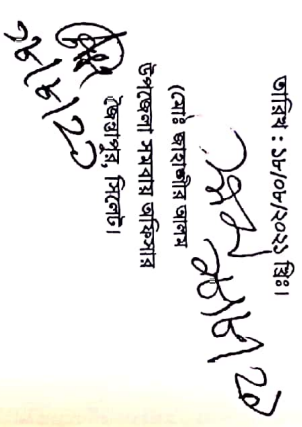 তারিখ : ১৮/০৮/২০২১ খ্রিঃ।
১৮/৮/২১
(মোঃ জাহাঙ্গীর আলম
উপজেলা সমবায় অফিসার
জৈন্তাপুর, সিলেট।
১৮/৮/২১